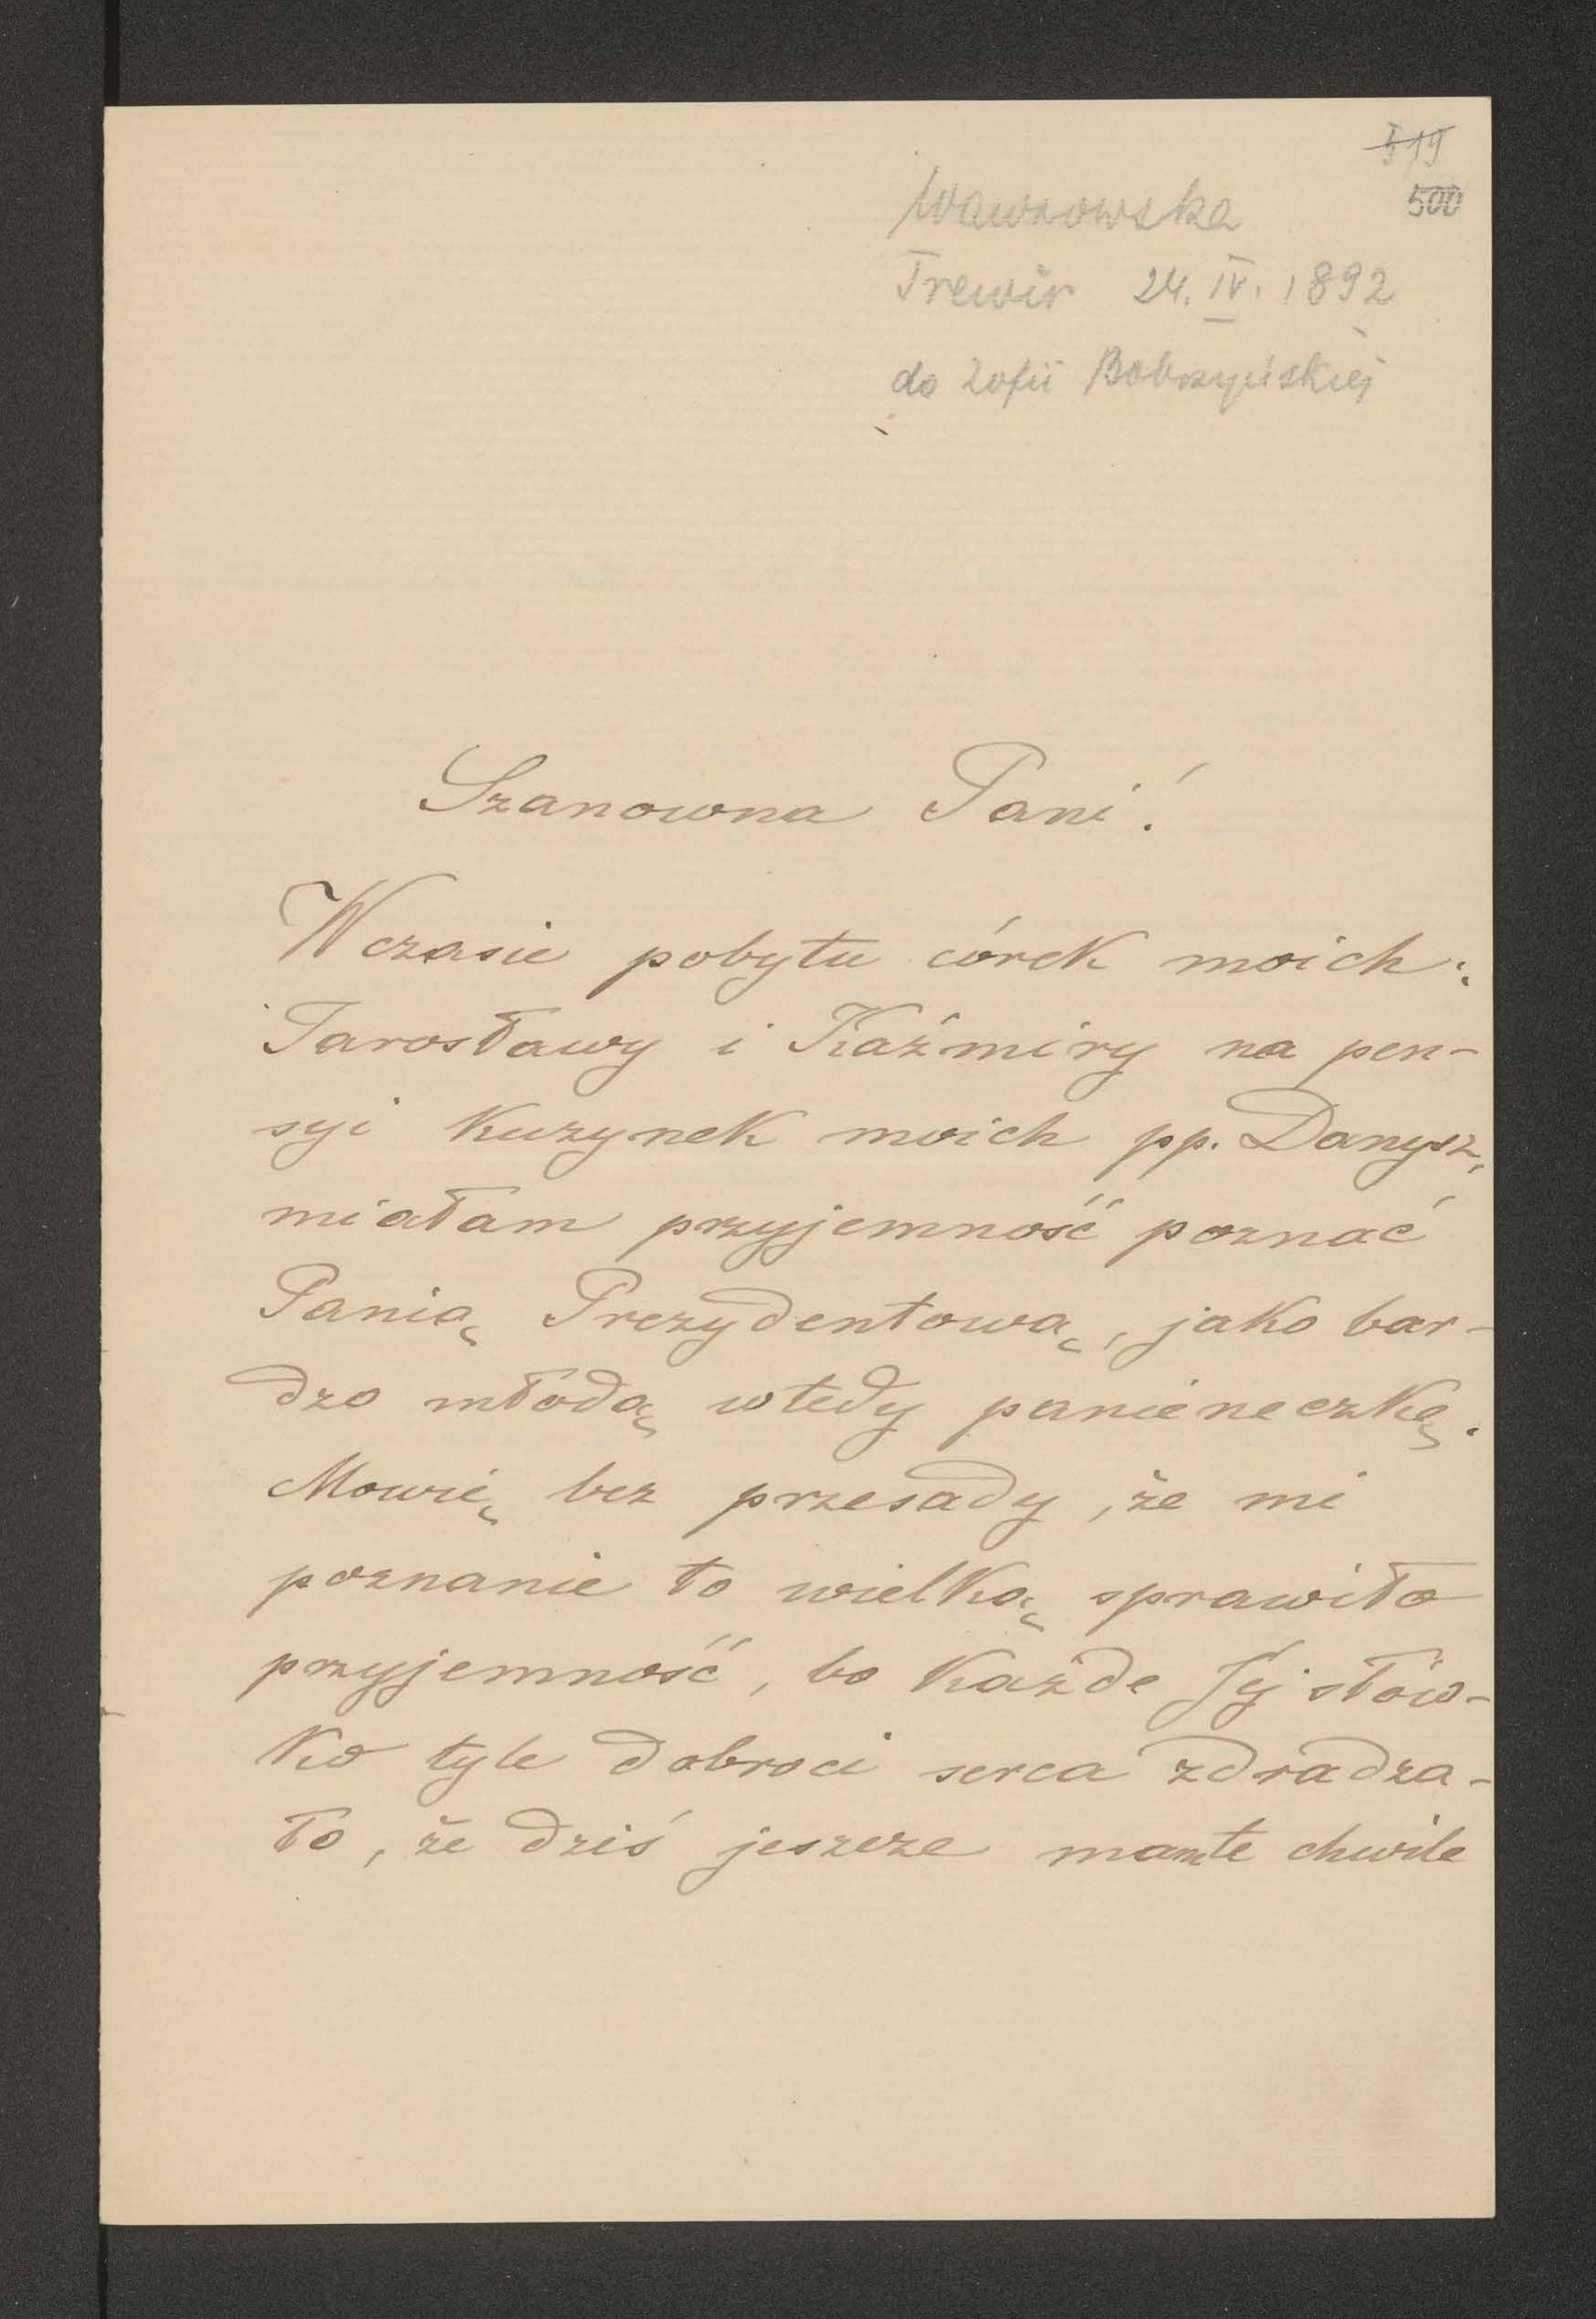 519
500
Wawrowska
Trewir 24. IV. 1892
do Zofii Bobrzyńskiej
Szanowna Pani!
W czasie pobytu córek moich:
Jarosławy i Kaźmiry na pen-
syi kuzynek moich pp. Danysz,
miałam przyjemność poznać
Panią Prezydentową, jako bar-
dzo młodą wtedy panieneczkę.
Mowię bez przesady, że mi
poznanie to wielką sprawiło
przyjemność, bo każde Jéj słów-
ko tyle dobroci serca zdradza-
ło, że dziś jeszcze mam te chwile